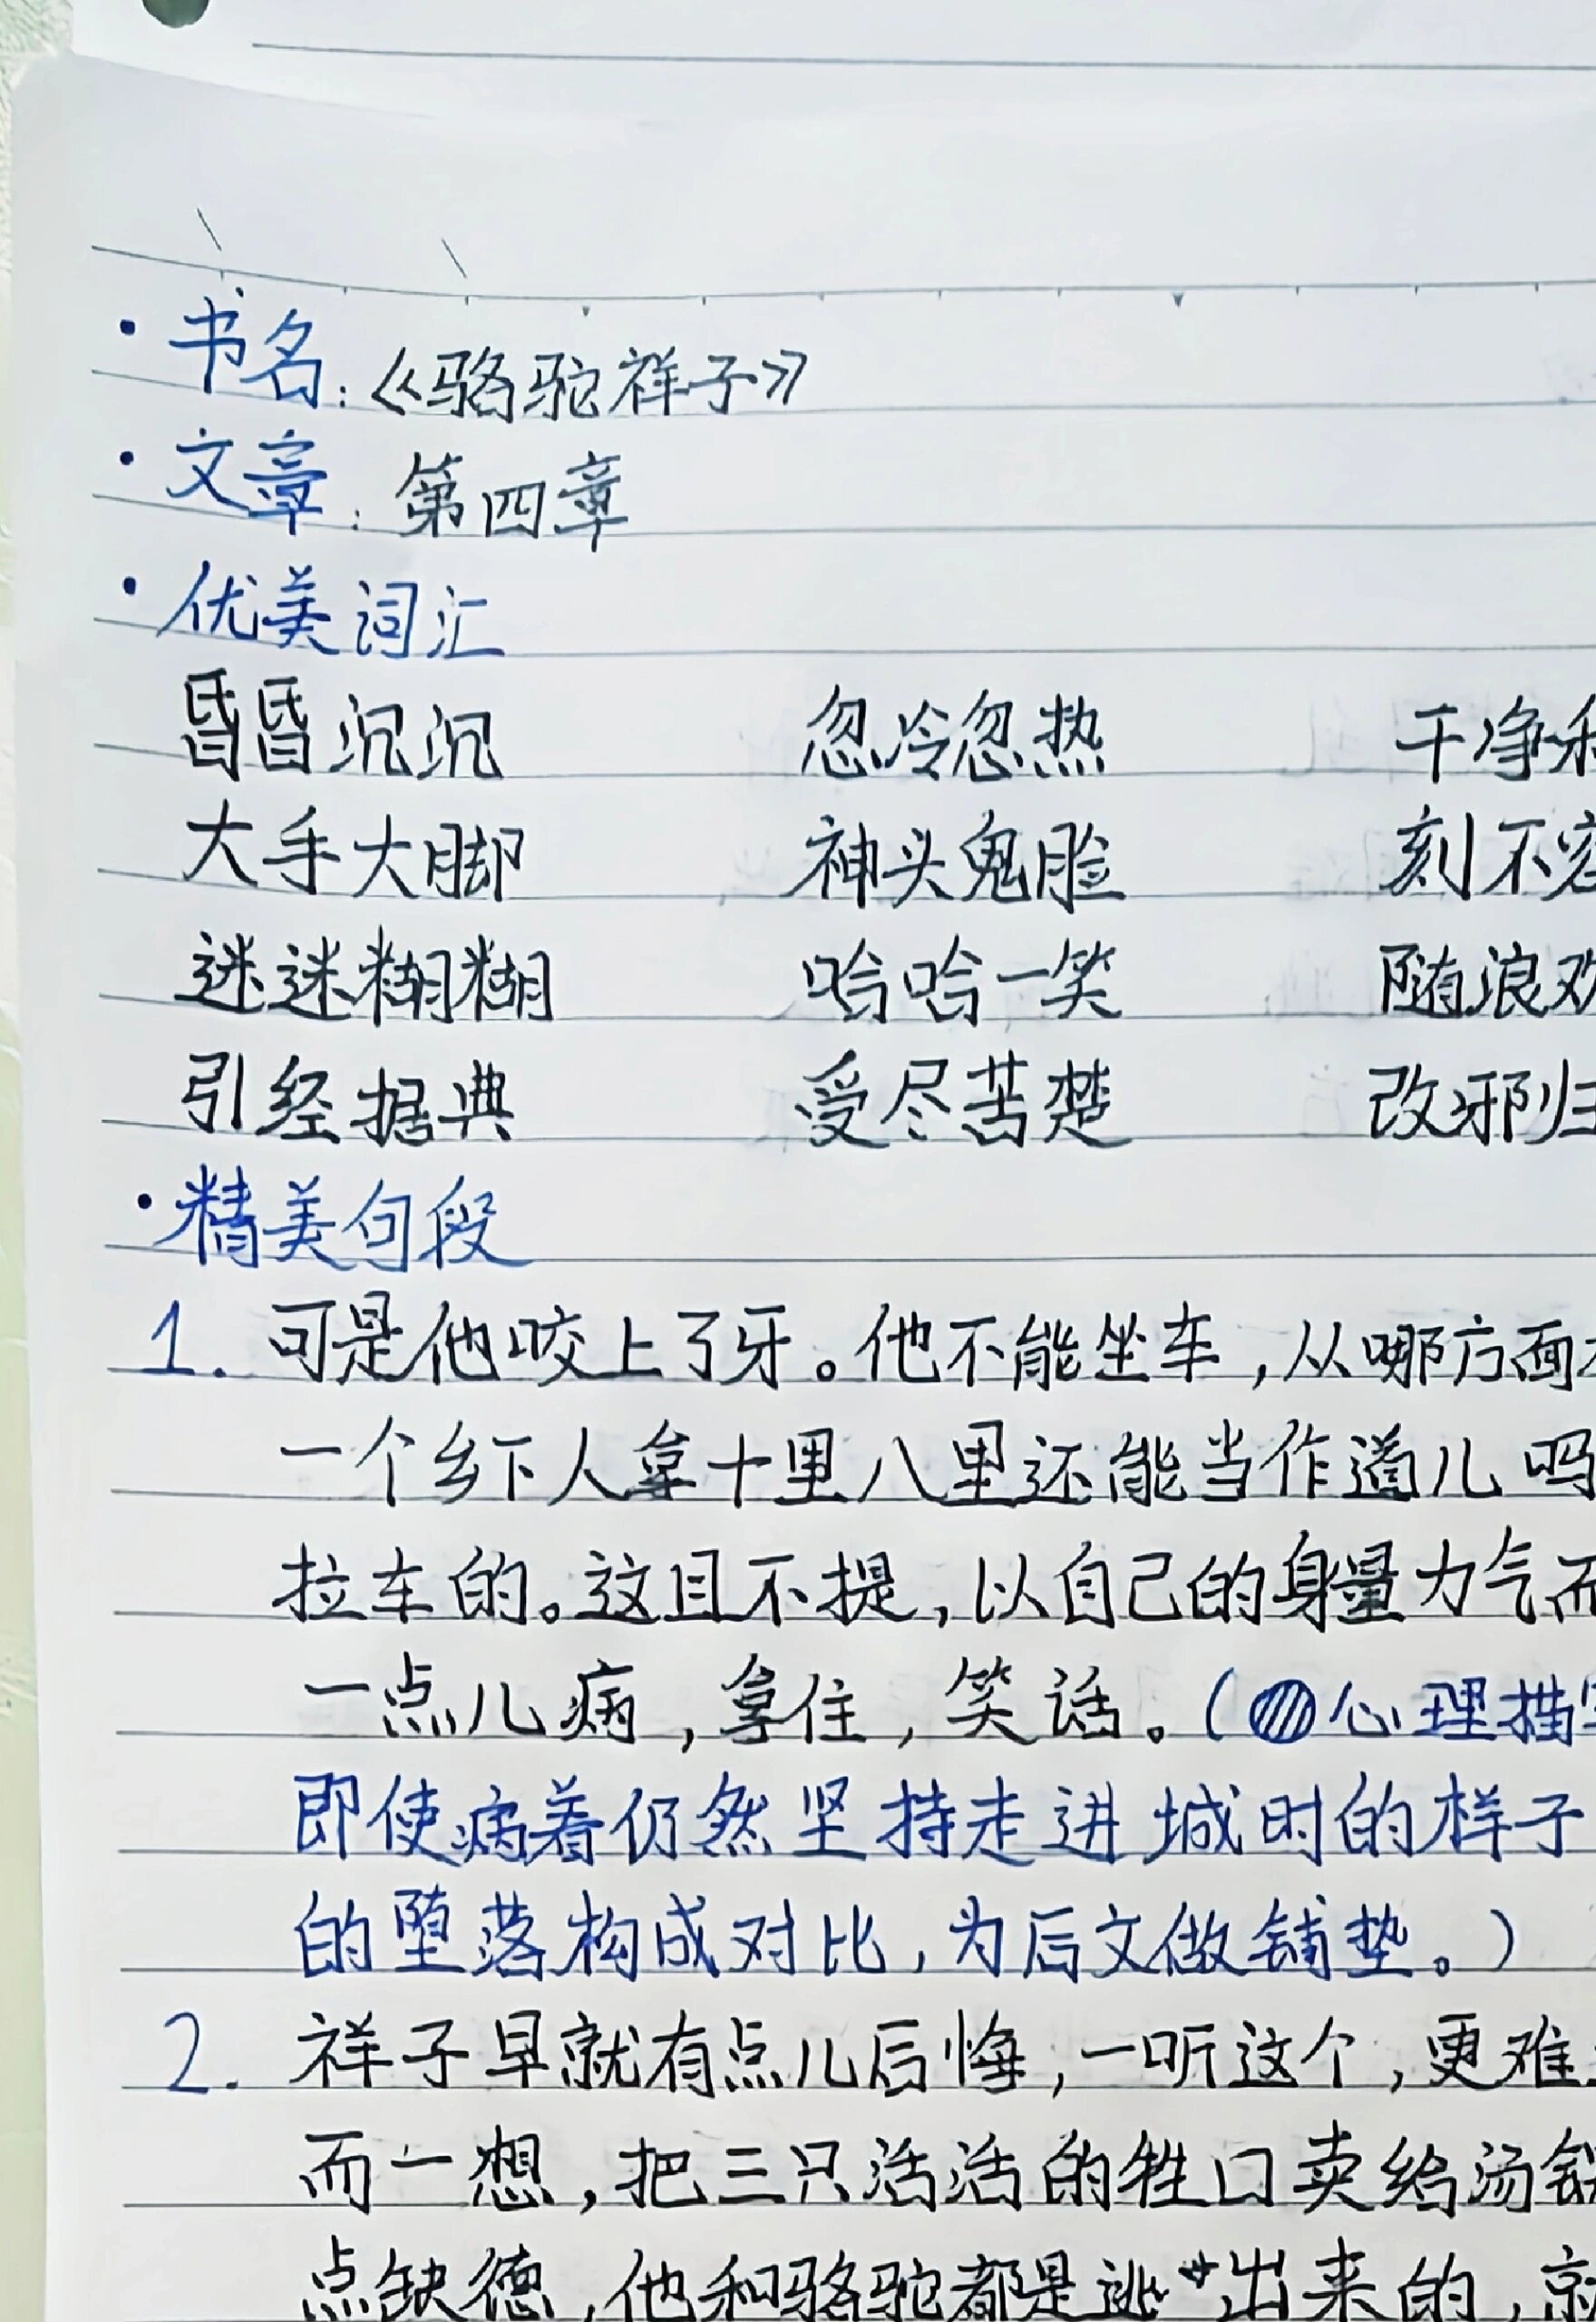 ·书名：《骆驼祥子》
·文章：第四章
·优美词汇
昏昏沉沉 忽冷忽热 干净利
大手大脚 神头鬼脸 刻不容
迷迷糊糊 哈哈一笑 随浪欢
引经据典 受尽苦楚 改邪归
·精美句段
1. 可是他咬上了牙。他不能坐车，从哪方面
一个乡下人拿十里八里还能当作道儿吗
拉车的。这且不提，以自己的身量力气而
一点儿病，拿住，笑话。（心理描写
即使病着仍然坚持走进城时的样子
的堕落构成对比，为后文做铺垫。）
2. 祥子早就有点儿后悔，一听这个，更难
而一想，把三只活活的牲口卖给汤锅
点缺德，他和骆驼都是逃出来的，就